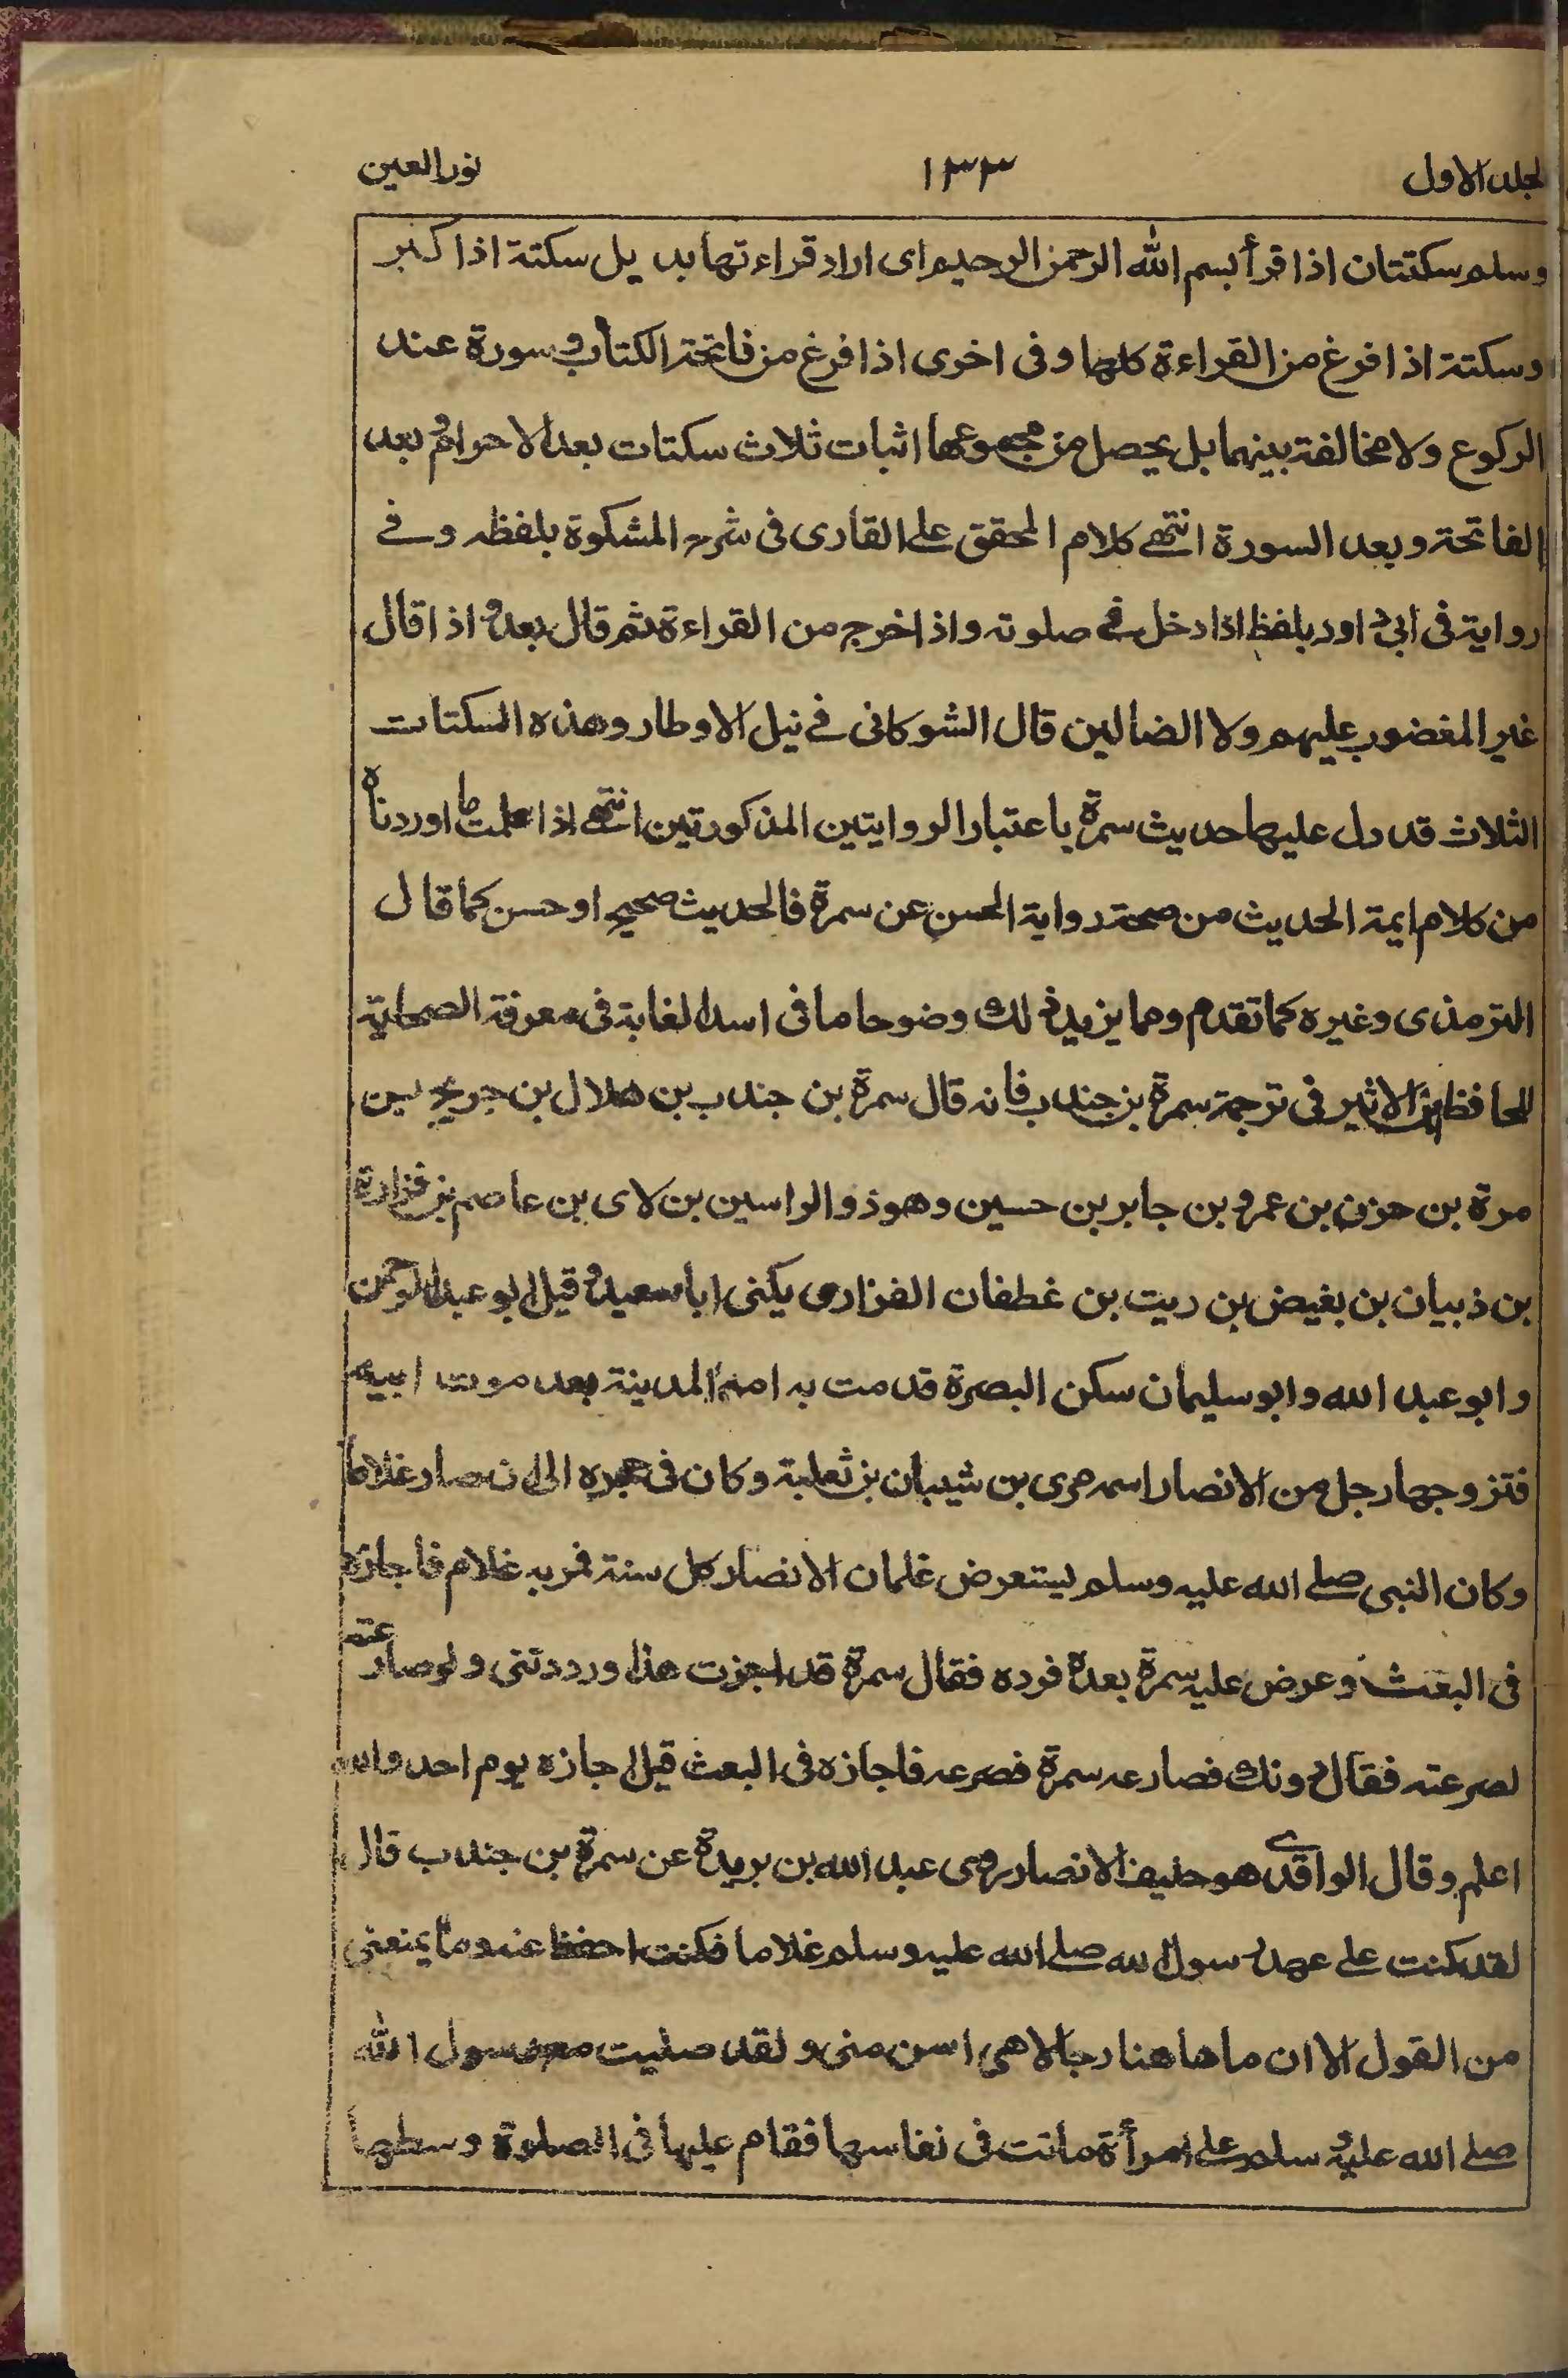 لجلد الاول ١٣٣ نور العين
وسلم سكتتان اذا قرأ بسم الله الرحمن الرحيم اى اراد قراءتها بدليل سكتة اذا كبر
وسكتة اذا فرغ من القراءة كلها وفى اخرى اذا فرغ من فاتحة الكتاب وسورة عند
الركوع ولا مخالفة بينهما بل يحصل من مجموعها اثبات ثلاث سكتات بعد الاحرام وبعد
الفاتحة وبعد السورة انتهے كلام المحقق علے القارى فى شرح المشكوة بلفظه وفے
رواية فى ابى داود بلفظ اذا دخل فے صلوته واذا خرج من القراءة ثم قال بعد واذا قال
غير المغضوب عليهم ولا الضالين قال الشوكانى فے نيل الاوطار وهذه السكتات
الثلاث قد دل عليها حديث سمرة باعتبار الروايتين المذكورتين انتهے اذا علمت ما اوردناه
من كلام ايمة الحديث من صحة رواية الحسن عن سمرة فالحديث صحيح او حسن كما قال
الترمذى وغيره كما تقدم ومما يزيد ذلك وضوحا ما فى اسد الغابة فى معرفة الصحابة
للحافظ ابن الاثير فى ترجمة سمرة بن جندب فانه قال سمرة بن جندب بن هلال بن جريج بن
مرة بن حزن بن عمرو بن جابر بن حسين وهو ذو الراسين بن لاى بن عاصم بن فزارة
بن ذبيان بن بغيض بن ريت بن غطفان الفزارى يكنى ابا سعيد وقيل ابو عبد الرحمن
وابو عبد الله وابو سليمان سكن البصرة قدمت به امه المدينة بعد موت ابيه
فتزوجها رجل من الانصار اسمه مرى بن شيبان بن ثعلبة وكان فى حجره الى ان صار غلاما
وكان النبى صلے الله عليه وسلم يستعرض غلمان الانصار كل سنة فمر به غلام فاجازه
فى البعث وعرض عليه سمرة بعده فرده فقال سمرة قد اجزت هذا ورددتنى ولو صارعته
لصرعته فقال دونك فصارعه سمرة فصرعه فاجازه فى البعث قيل اجازه يوم احد والله
اعلم وقال الواقدے هو حليف الانصار روى عبد الله بن بريدة عن سمرة بن جندب قال
لقد كنت علے عهد رسول الله صلے الله عليه وسلم غلاما فكنت احفظ عنه وما يمنعنى
من القول الا ان ما هاهنا رجالا هى اسن منى ولقد صليت مع رسول الله
صلے الله عليه وسلم علے امرأة ماتت فى نفاسها فقام عليها فى الصلوة وسطها